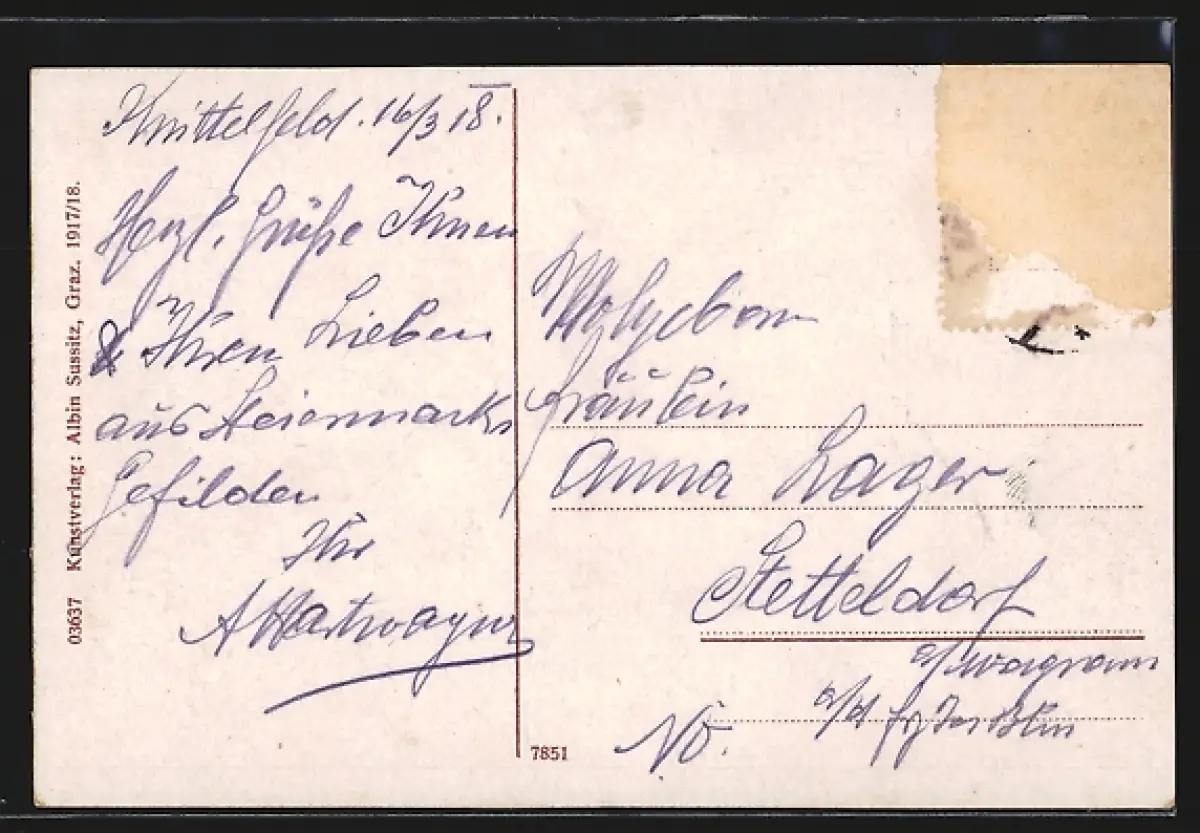 Knittelfeld. 16/3 18.
Herzl. Grüße Ihnen
& Ihren Lieben
aus Steiermarks
Gefilden
Ihr
Kunstverlag: Albin Sussitz, Graz. 1917/18.
03637
7851
Fräulein
Anna Lager
Stetteldorf
a/Wagram
N.Ö.